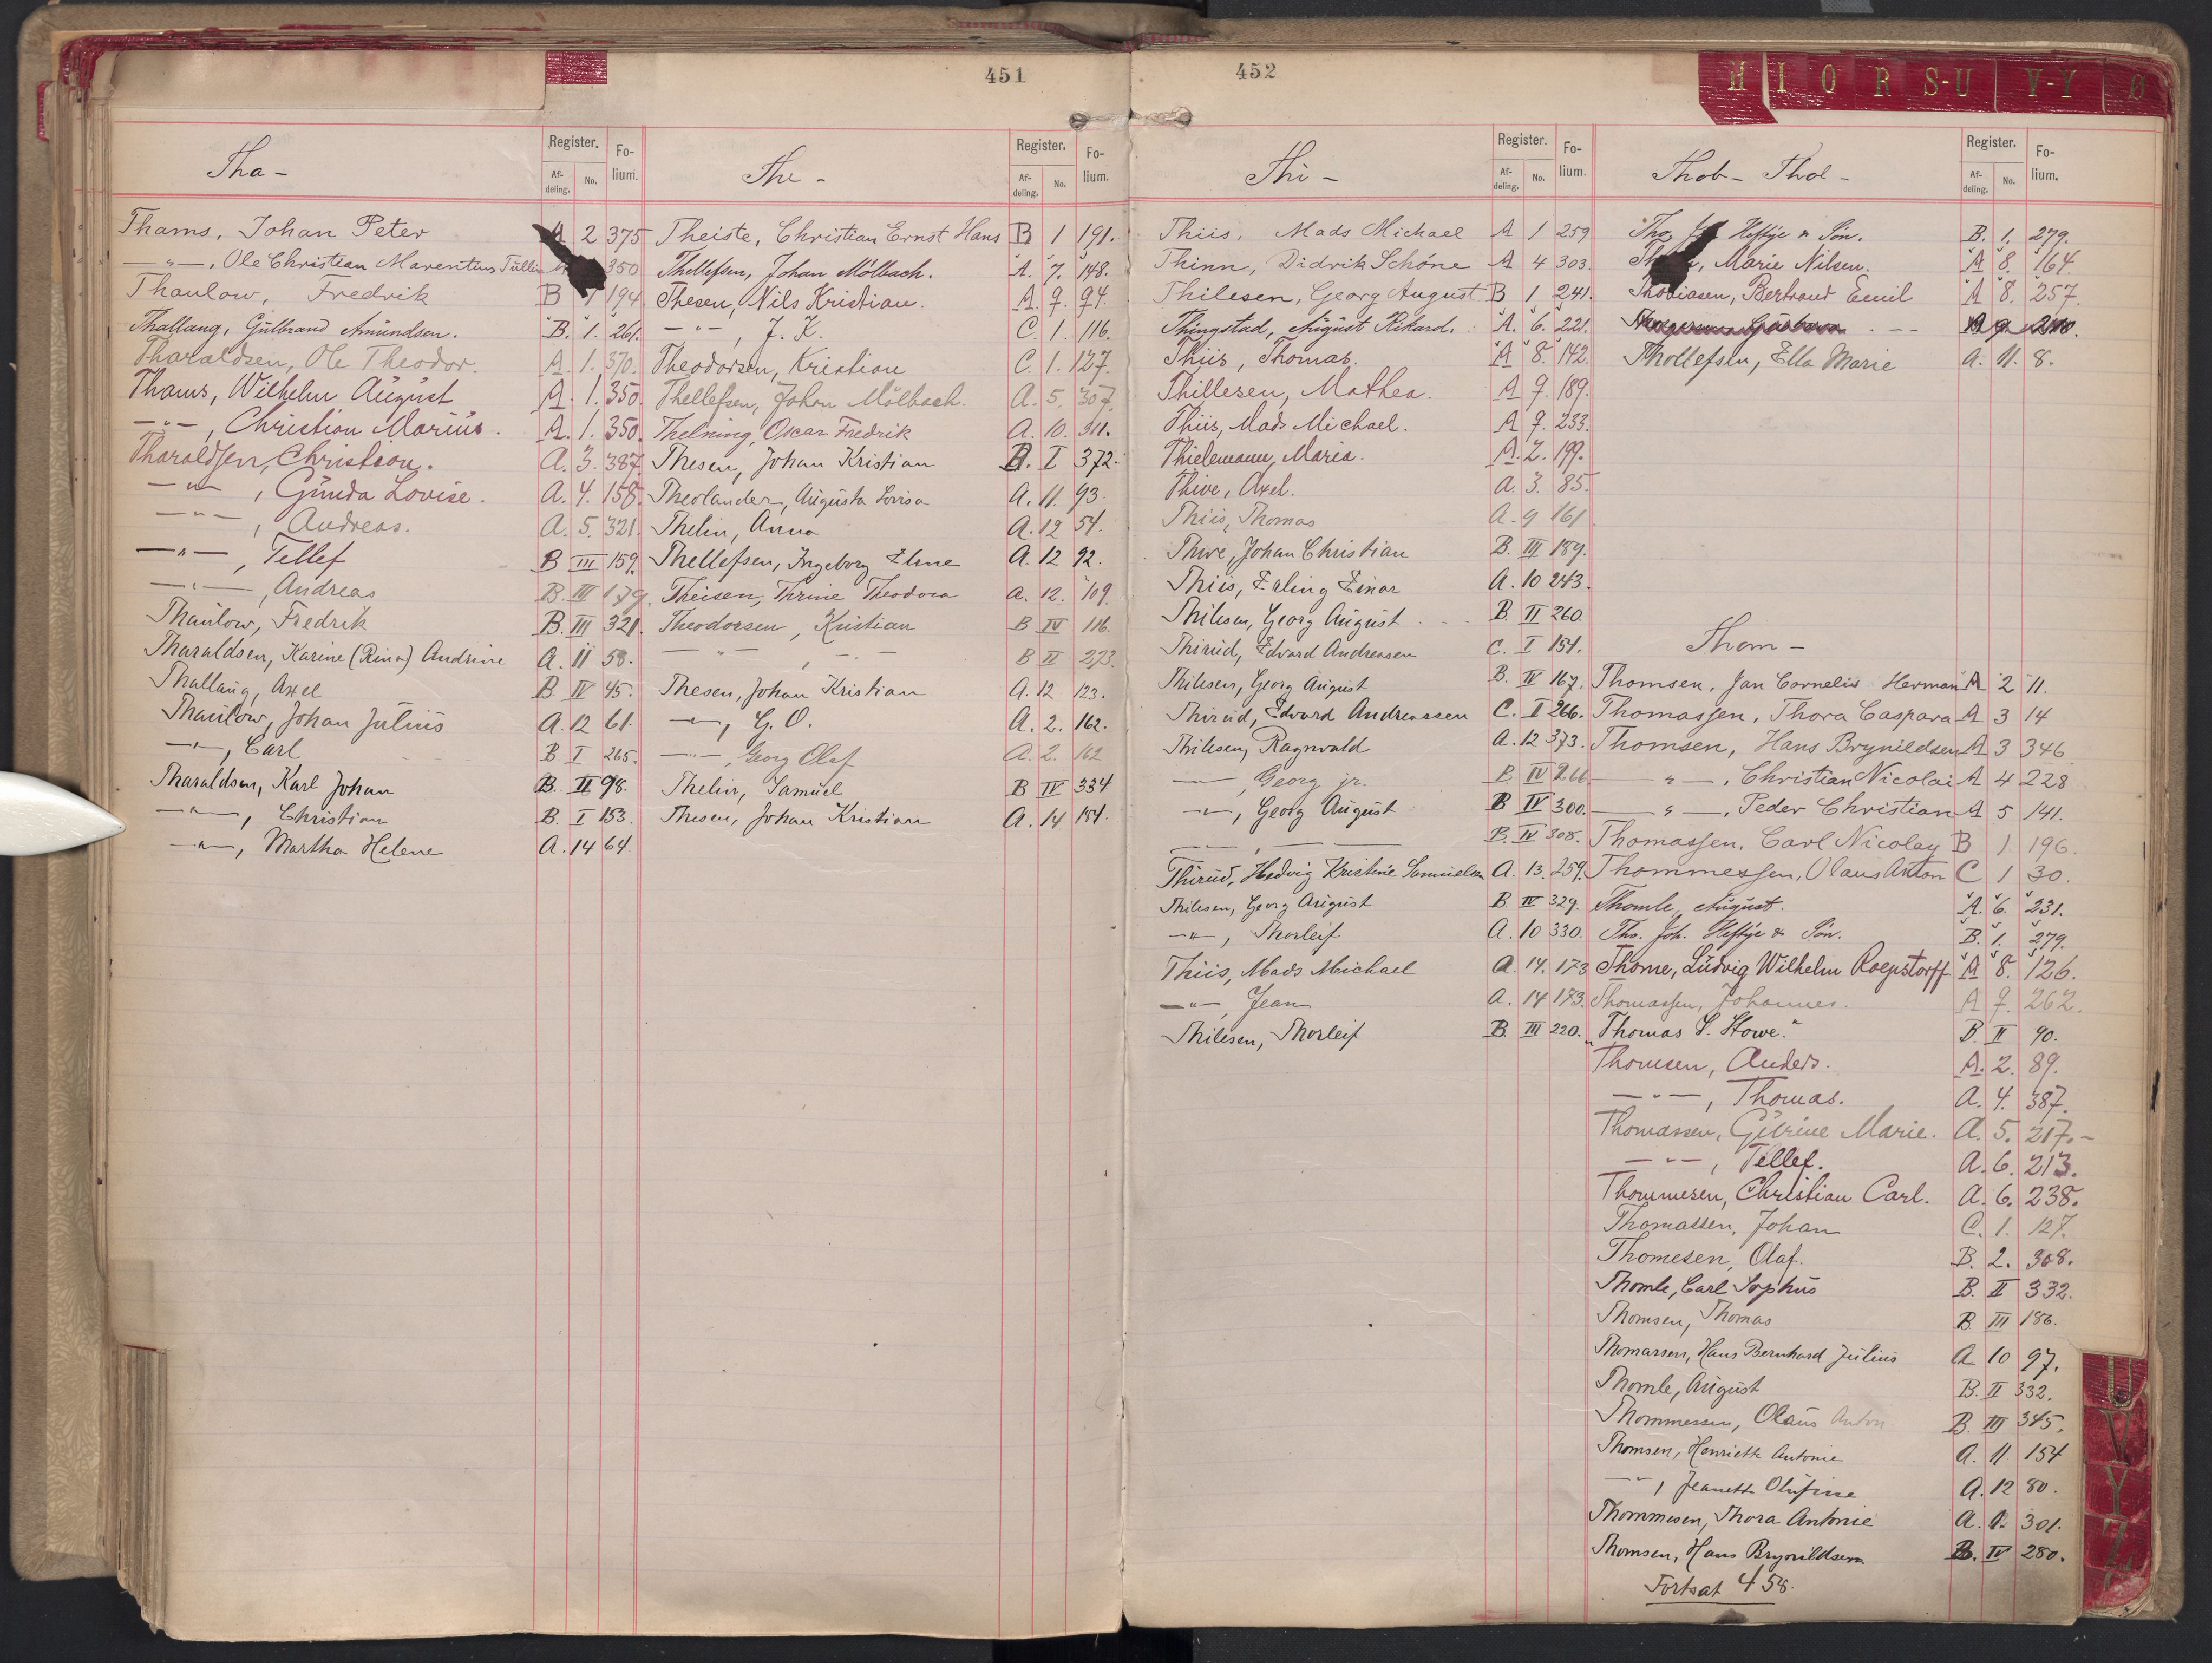 451
Tha-
Register.
Af-deling.
No.
Fo-lium.
Thams, Johan Peter A 2 375
—"—, Ole Christian Marentius Tullin 350
Thaulow, Fredrik B 1 194
Thallang, Gulbrand Amundsen. B. 1. 261.
Tharaldsen, Ole Theodor. A. 1. 370.
Thams, Wilhelm August A. 1. 350.
—"—, Christian Marius. A. 1. 350.
Tharaldsen, Christian. A. 3. 387.
—"—, Gunda Lovise. A. 4. 158.
—"—, Andreas. A. 5. 321.
—"—, Tellef B III 159.
—"—, Andreas B. III 179.
Thaulow, Fredrik B. III 321.
Tharaldsen, Karine (Rina) Andrine A. 11 58.
Thallaug, Axel B. IV 45.
Thaulow, Johan Julius A. 12 61.
—"—, Carl B. I 265.
Tharaldsen, Karl Johan B. II 98.
—"—, Christian B. I 153.
—"—, Martha Helene A. 14 64.
The-
Register.
Af-deling.
No.
Fo-lium.
Theiste, Christian Ernst Hans B 1 191.
Thellefsen, Johan Mölbach. A. 7. 148.
Thesen, Nils Kristian. A. 9. 94.
—"—, J. K. C. 1. 116.
Theodorsen, Kristian C. 1. 127.
Thellefsen, Johan Mölbach. A. 5. 307.
Thelning, Oscar Fredrik A. 10. 311.
Thesen, Johan Kristian B. I 372.
Theolander, Augusta Lovisa A. 11. 93.
Thelin, Anna A. 12 54.
Thellefsen, Ingeborg Eline A. 12 92.
Theisen, Thrine Theodora A. 12. 109.
Theodorsen, Kristian B IV 116.
—"—, —"— B II 273.
Thesen, Johan Kristian A. 12 123.
—"—, G. O. A. 2. 162.
—"—, Georg Olaf A. 2. 162
Thelin, Samuel B IV 334
Thesen, Johan Kristian A. 14 184.
452
H I O R S-U V-Y Ø
Thi-
Register.
Af-deling.
No.
Fo-lium.
Thiis, Mads Michael A 1 259
Thinn, Didrik Schöne A 4 303.
Thilesen, Georg August B 1 241.
Thingstad, August Rikard. A. 6. 221.
Thiis, Thomas. A 8. 142.
Thillesen, Mathea. A 9. 189.
Thiis, Mads Michael. A 9. 233.
Thielemann, Maria. A. 2. 199.
Thive, Axel. A. 3. 85.
Thiis, Thomas A. 9 161
Thive, Johan Christian B. III 189.
Thiis, Erling Einar A. 10 243.
Thilesen, Georg August B. II 260.
Thirud, Edvard Andreasen C. I 151.
Thilesen, Georg August B. IV 167.
Thirud, Edvard Andreassen C. I 266.
Thilesen, Ragnvald A. 12 373.
—"—, Georg jr. B IV 266
—"—, Georg August B IV 300.
—"—, — — B. IV 308.
Thirud, Hedvig Kristine Samuelsen A. 13. 259.
Thilesen, Georg August B. IV 329.
—"—, Thorleif A. 10 330.
Thiis, Mads Michael A. 14. 173
—"—, Jean A. 14 173.
Thilesen, Thorleif B. III 220.
Thob- Thol-
Register.
Af-deling.
No.
Fo-lium.
Heftye & Søn. B. 1. 279.
Marie Nilsen. A 8. 164.
Thobiasen, Bertrand Emil A 8. 257.
Thollefsen, Ella Marie A. 11. 8.
Thom-
Thomsen, Jan Cornelis Herman A 2 11.
Thomassen, Thora Caspara A 3 14
Thomsen, Hans Brynildsen A 3 346
—"—, Christian Nicolai A 4 228
—"—, Peder Christian A 5 141.
Thomassen, Carl Nicolay B 1 196.
Thommessen, Olaus Anton C 1 30.
Thomle, August. A. 6. 231.
Ths. Joh. Heftye & Søn. B. 1. 279.
Thome, Ludvig Wilhelm Roepstorff A 8. 126.
Thomassen, Johannes. A 9. 262.
"Thomas S. Stowe." B. II 90.
Thomsen, Anders. A. 2. 89.
—"—, Thomas. A. 4. 387.
Thomassen, Gurine Marie. A. 5. 217.-
—"—, Tellef. A. 6. 213.
Thommesen, Christian Carl. A. 6. 238.
Thomassen, Johan C. 1. 127.
Thomesen, Olaf. B. 2. 308.
Thomle, Carl Sophus B. II 332.
Thomsen, Thomas B III 186.
Thomassen, Hans Bernhard Julius A. 10 97.
Thomle, August B. II 332.
Thommessen, Olaus Anton B. III 345.
Thomsen, Henriette Antonie A. 11. 154
—"—, Jeanette Olufine A. 12 80.
Thommesen, Thora Antonie A. 12 301.
Thomsen, Hans Brynildsen B. IV 280.
Fortsat 458.
U V Y Z